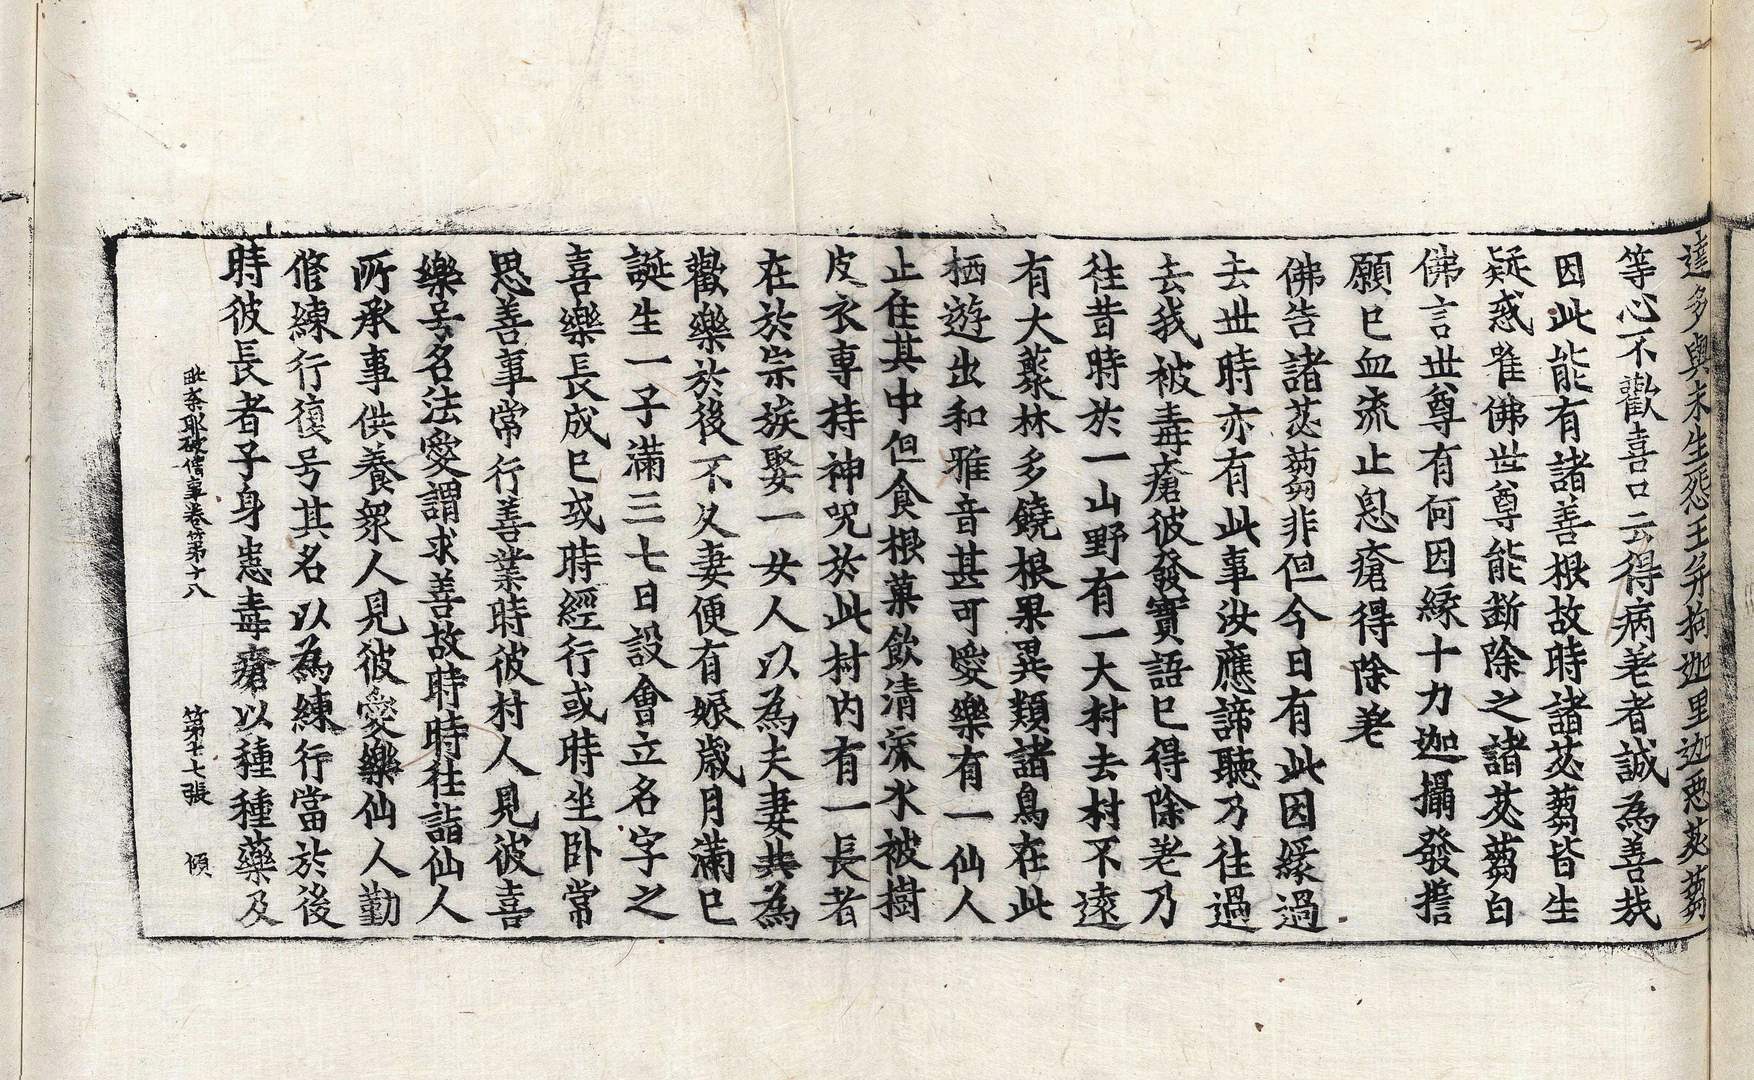 達多與未生怨王并拘迦里迦惡苾蒭
等心不歡喜口云得病差者誠為善哉
因此能有諸善根故時諸苾蒭皆生
疑惑唯佛世尊能断除之諸苾蒭白
佛言世尊有何因緣十力迦攝發誓
願已血流止息瘡得除差
佛告諸苾蒭非但今日有此因緣過
去世時亦有此事汝應諦聽乃往過
去我被毒瘡彼發實語已得除差乃
往昔時於一山野有一大村去村不遠
有大藂林多饒根果異類諸鳥在此
栖遊出和雅音甚可愛樂有一仙人
止住其中但食根菓飲清流水被樹
皮衣專持神呪於此村内有一長者
在於宗族娶一女人以為夫妻共為
歡樂於後不久妻便有娠歲月滿已
誕生一子滿三七日設會立名字之
喜樂長成已或時經行或時坐卧常
思善事常行善業時彼村人見彼喜
樂号名法愛謂求善故時時往詣仙人
所承事供養衆人見彼愛樂仙人勤
修練行復号其名以為練行當於後
時彼長者子身患毒瘡以種種藥及
毗奈耶破僧事卷第十八 第十七張 傾